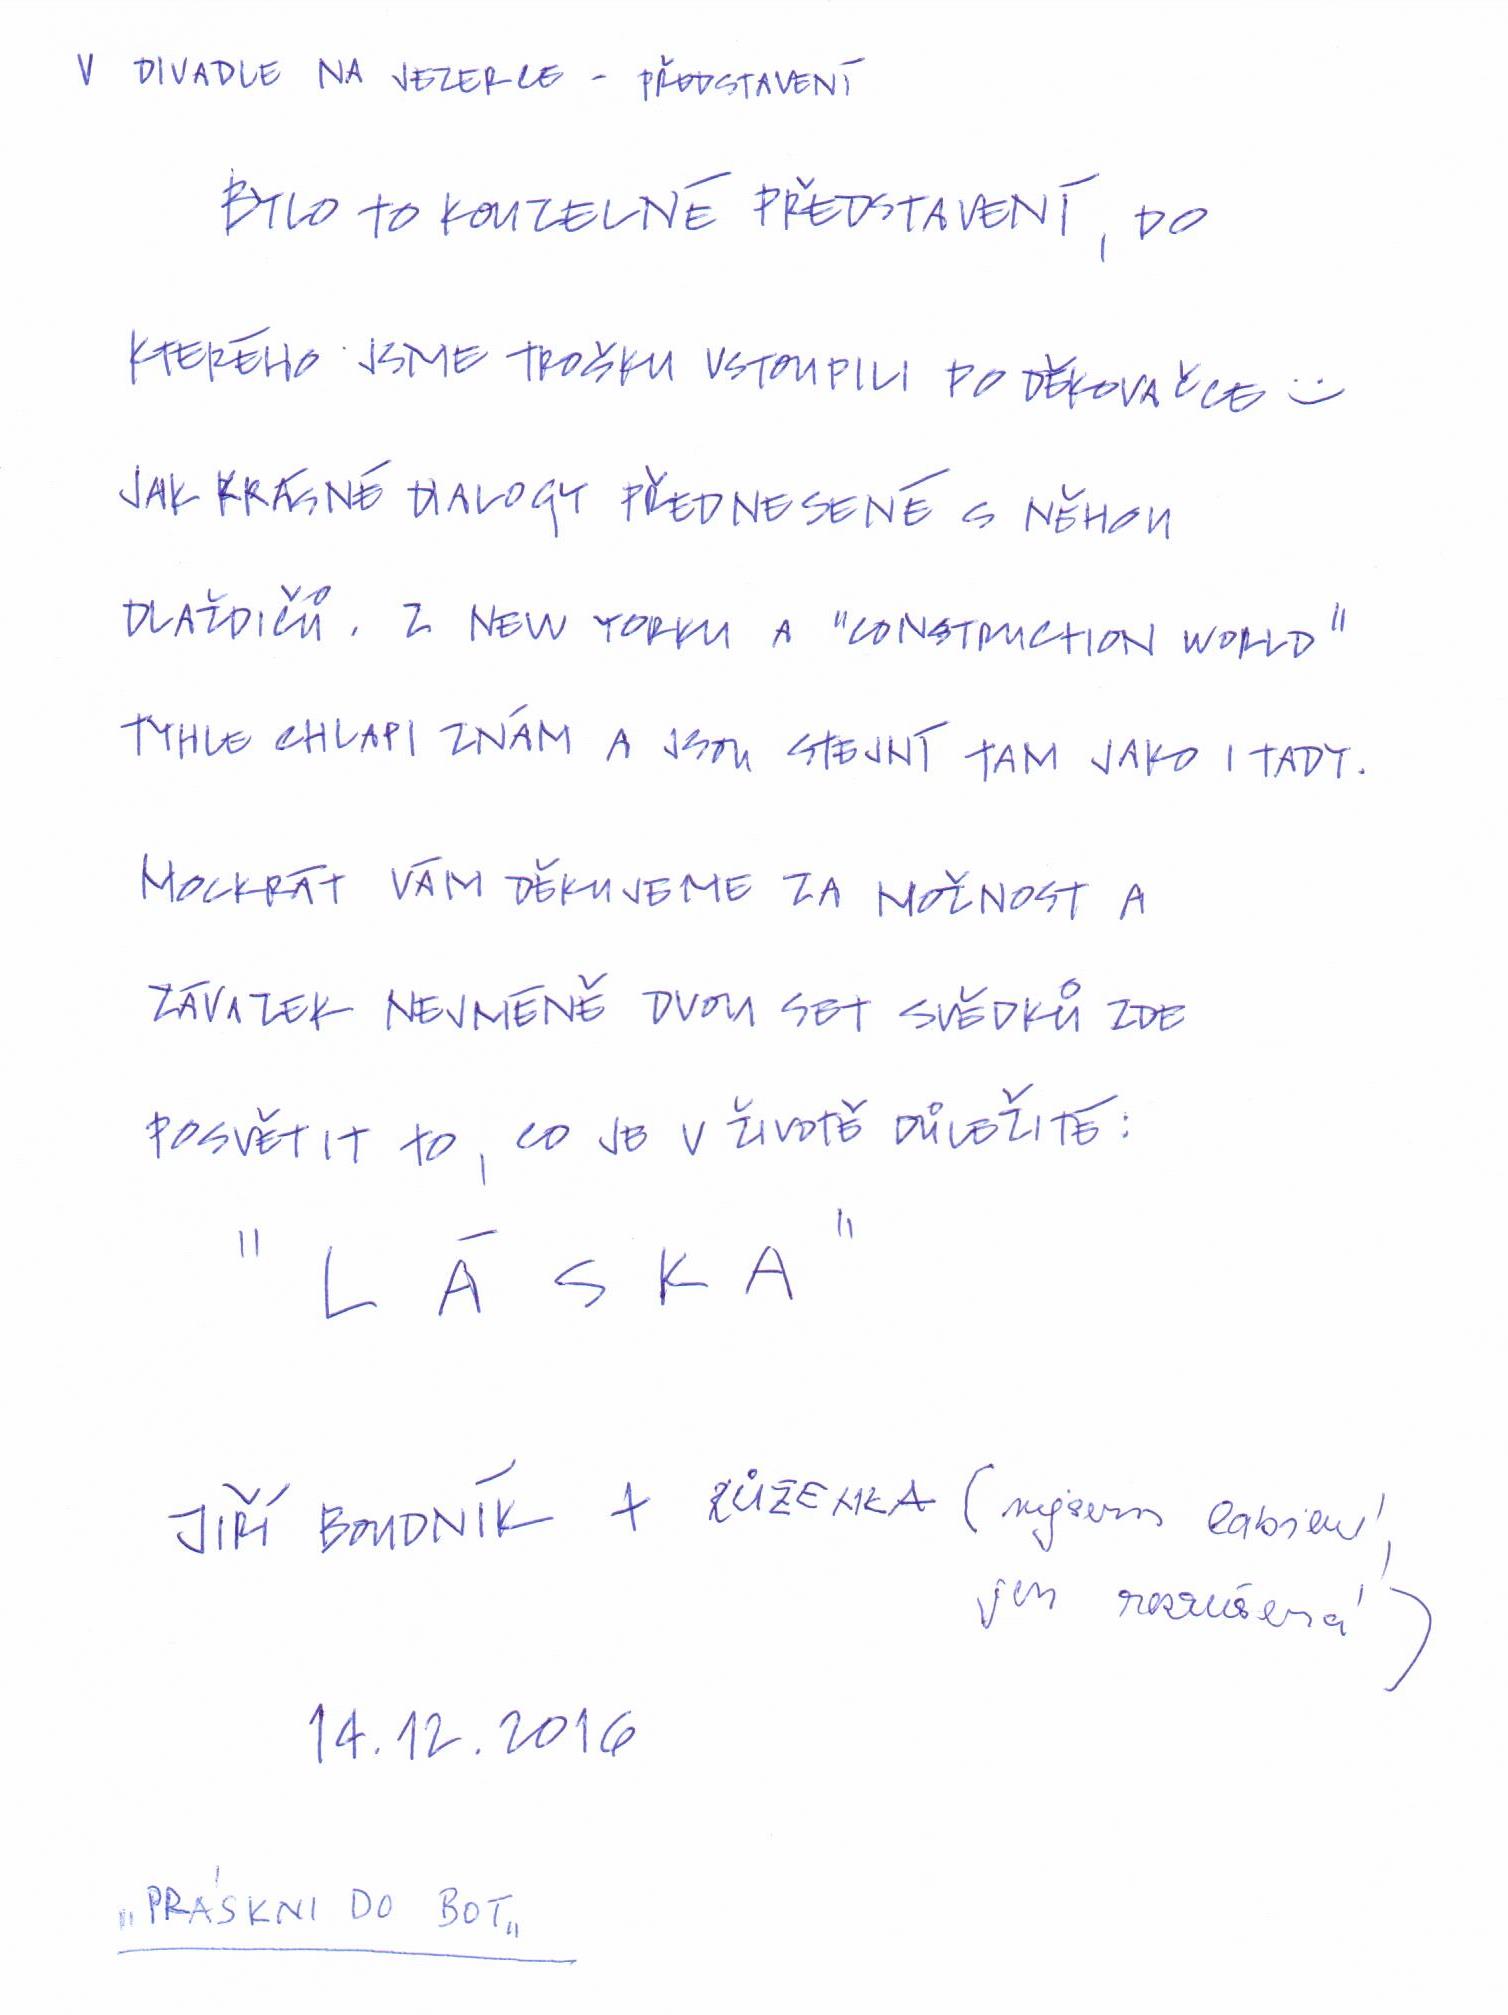 V DIVADLE NA JEZERCE - PŘEDSTAVENÍ
BYLO TO KOUZELNÉ PŘEDSTAVENÍ, DO
KTERÉHO JSME TROŠKU VSTOUPILI PO DĚKOVAČCE :)
JAK KRÁSNÉ DIALOGY PŘEDNESENÉ S NĚHOU
DLAŽDIČŮ. Z NEW YORKU A "CONSTRUCTION WORLD"
TYHLE CHLAPI ZNÁM A JSOU STEJNÍ TAM JAKO I TADY.
MOCKRÁT VÁM DĚKUJEME ZA MOŽNOST A
ZÁVAZEK NEJMÉNĚ DVOU SET SVĚDKŮ ZDE
POSVĚTIT TO, CO JE V ŽIVOTĚ DŮLEŽITÉ:
"LÁSKA"
JIŘÍ BOUDNÍK + RŮŽENKA (nejsem
jen rozrušená)
14.12.2016
„PRÁSKNI DO BOT„